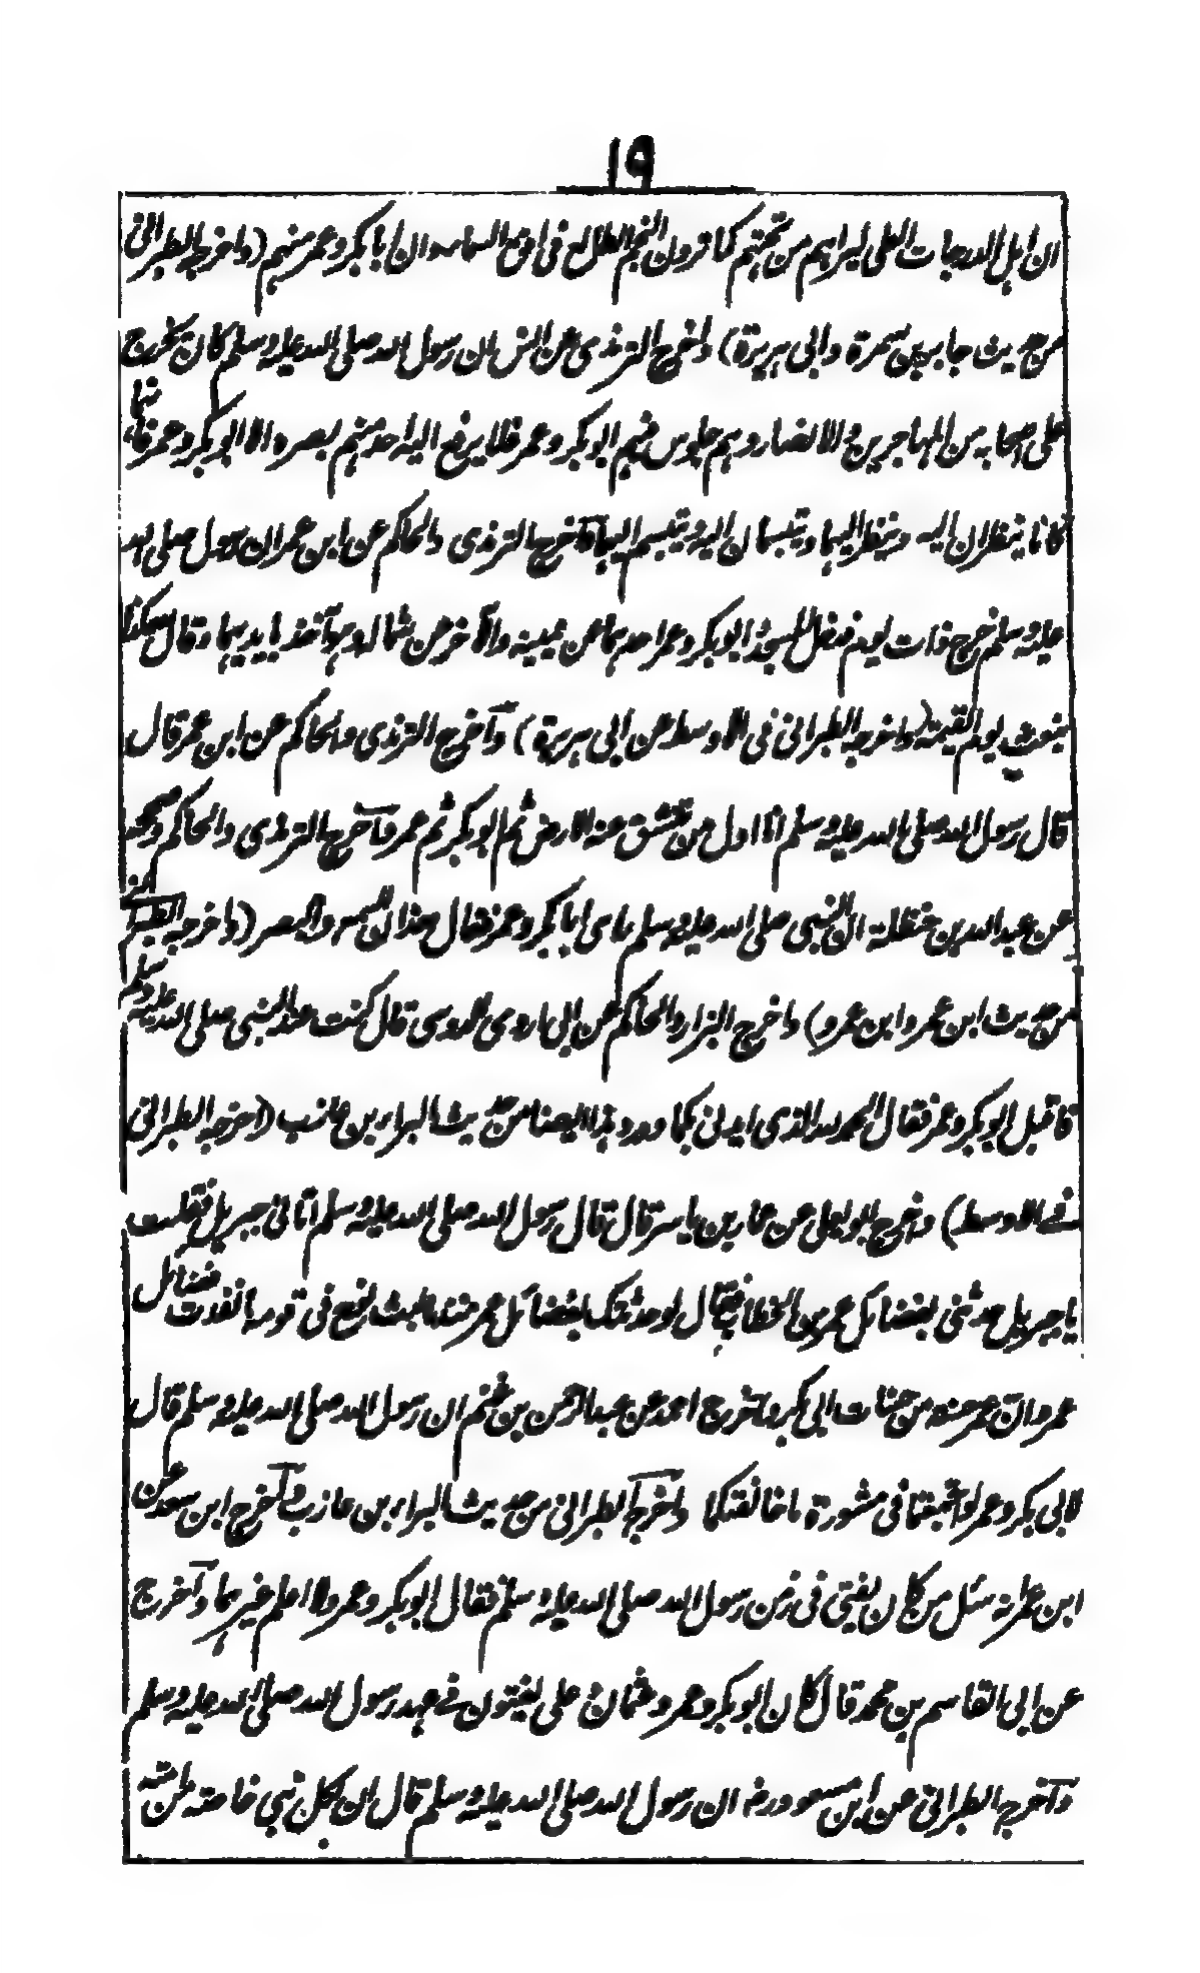 ١٩
ان اہل الدرجات العلی لیراہم من تحتہم کما ترون النجم الطالع فی افق السماء وان ابا بکر وعمر منہم (واخرجہ الطبرانی
من حدیث جابر بن سمرۃ وابی ہریرۃ) واخرج الترمذی عن انس ان رسول اللہ صلی اللہ علیہ وسلم کان یخرج
علی اصحابہ من المہاجرین والانصار وہم جلوس فیہم ابو بکر وعمر فلا یرفع الیہ احد منہم بصرہ الا ابو بکر وعمر فانہما
کانا ینظران الیہ وینظر الیہما ویتبسمان الیہ ویتبسم الیہما واخرج الترمذی والحاکم عن ابن عمر ان رسول صلی اللہ
علیہ وسلم خرج ذات یوم فدخل المسجد وابو بکر وعمر احدہما عن یمینہ والآخر عن شمالہ وہو آخذ بایدیہما وقال ہکذا
نبعث یوم القیمۃ (واخرجہ الطبرانی فی الاوسط عن ابی ہریرۃ) وآخرج الترمذی والحاکم عن ابن عمر قال
قال رسول اللہ صلی اللہ علیہ وسلم انا اول من تنشق عنہ الارض ثم ابو بکر ثم عمر وآخرج الترمذی والحاکم وصححہ
عن عبد اللہ بن حنظلۃ ان النبی صلی اللہ علیہ وسلم رای ابا بکر وعمر فقال ہذان السمع والبصر (واخرجہ الطبرانی
من حدیث ابن عمر وابن عمرو) واخرج البزار والحاکم عن ابی اروی الدوسی قال کنت عند النبی صلی اللہ علیہ وسلم
فاقبل ابو بکر وعمر فقال الحمد للہ الذی ایدنی بکما وورد ہذا ایضا من حدیث البراء بن عازب (اخرجہ الطبرانی
فے الاوسط) واخرج ابو یعلی عن عمار بن یاسر قال قال رسول اللہ صلی اللہ علیہ وسلم اتانی جبریل فقلت
یا جبریل حدثنی بفضائل عمر بن الخطاب فقال لو حدثتک بفضائل عمر منذ ما لبث نوح فی قومہ ما نفدت فضائل
عمر وان عمر حسنۃ من حسنات ابی بکر واخرج احمد عن عبد الرحمن بن غنم ان رسول اللہ صلی اللہ علیہ وسلم قال
لابی بکر وعمر لو اجتمعتما فی مشورۃ ما خالفتکما واخرجہ الطبرانی من حدیث البراء بن عازب وآخرج ابن سعد عن
ابن عمر انہ سئل من کان یفتی فی زمن رسول اللہ صلی اللہ علیہ وسلم فقال ابو بکر وعمر ولا اعلم غیرہما وآخرج
عن ابی القاسم بن محمد قال کان ابو بکر وعمر وعثمان وعلی یفتون فے عہد رسول اللہ صلی اللہ علیہ وسلم
وآخرج الطبرانی عن ابن مسعود رض ان رسول اللہ صلی اللہ علیہ وسلم قال ان لکل نبی خاصتہ من امتہ